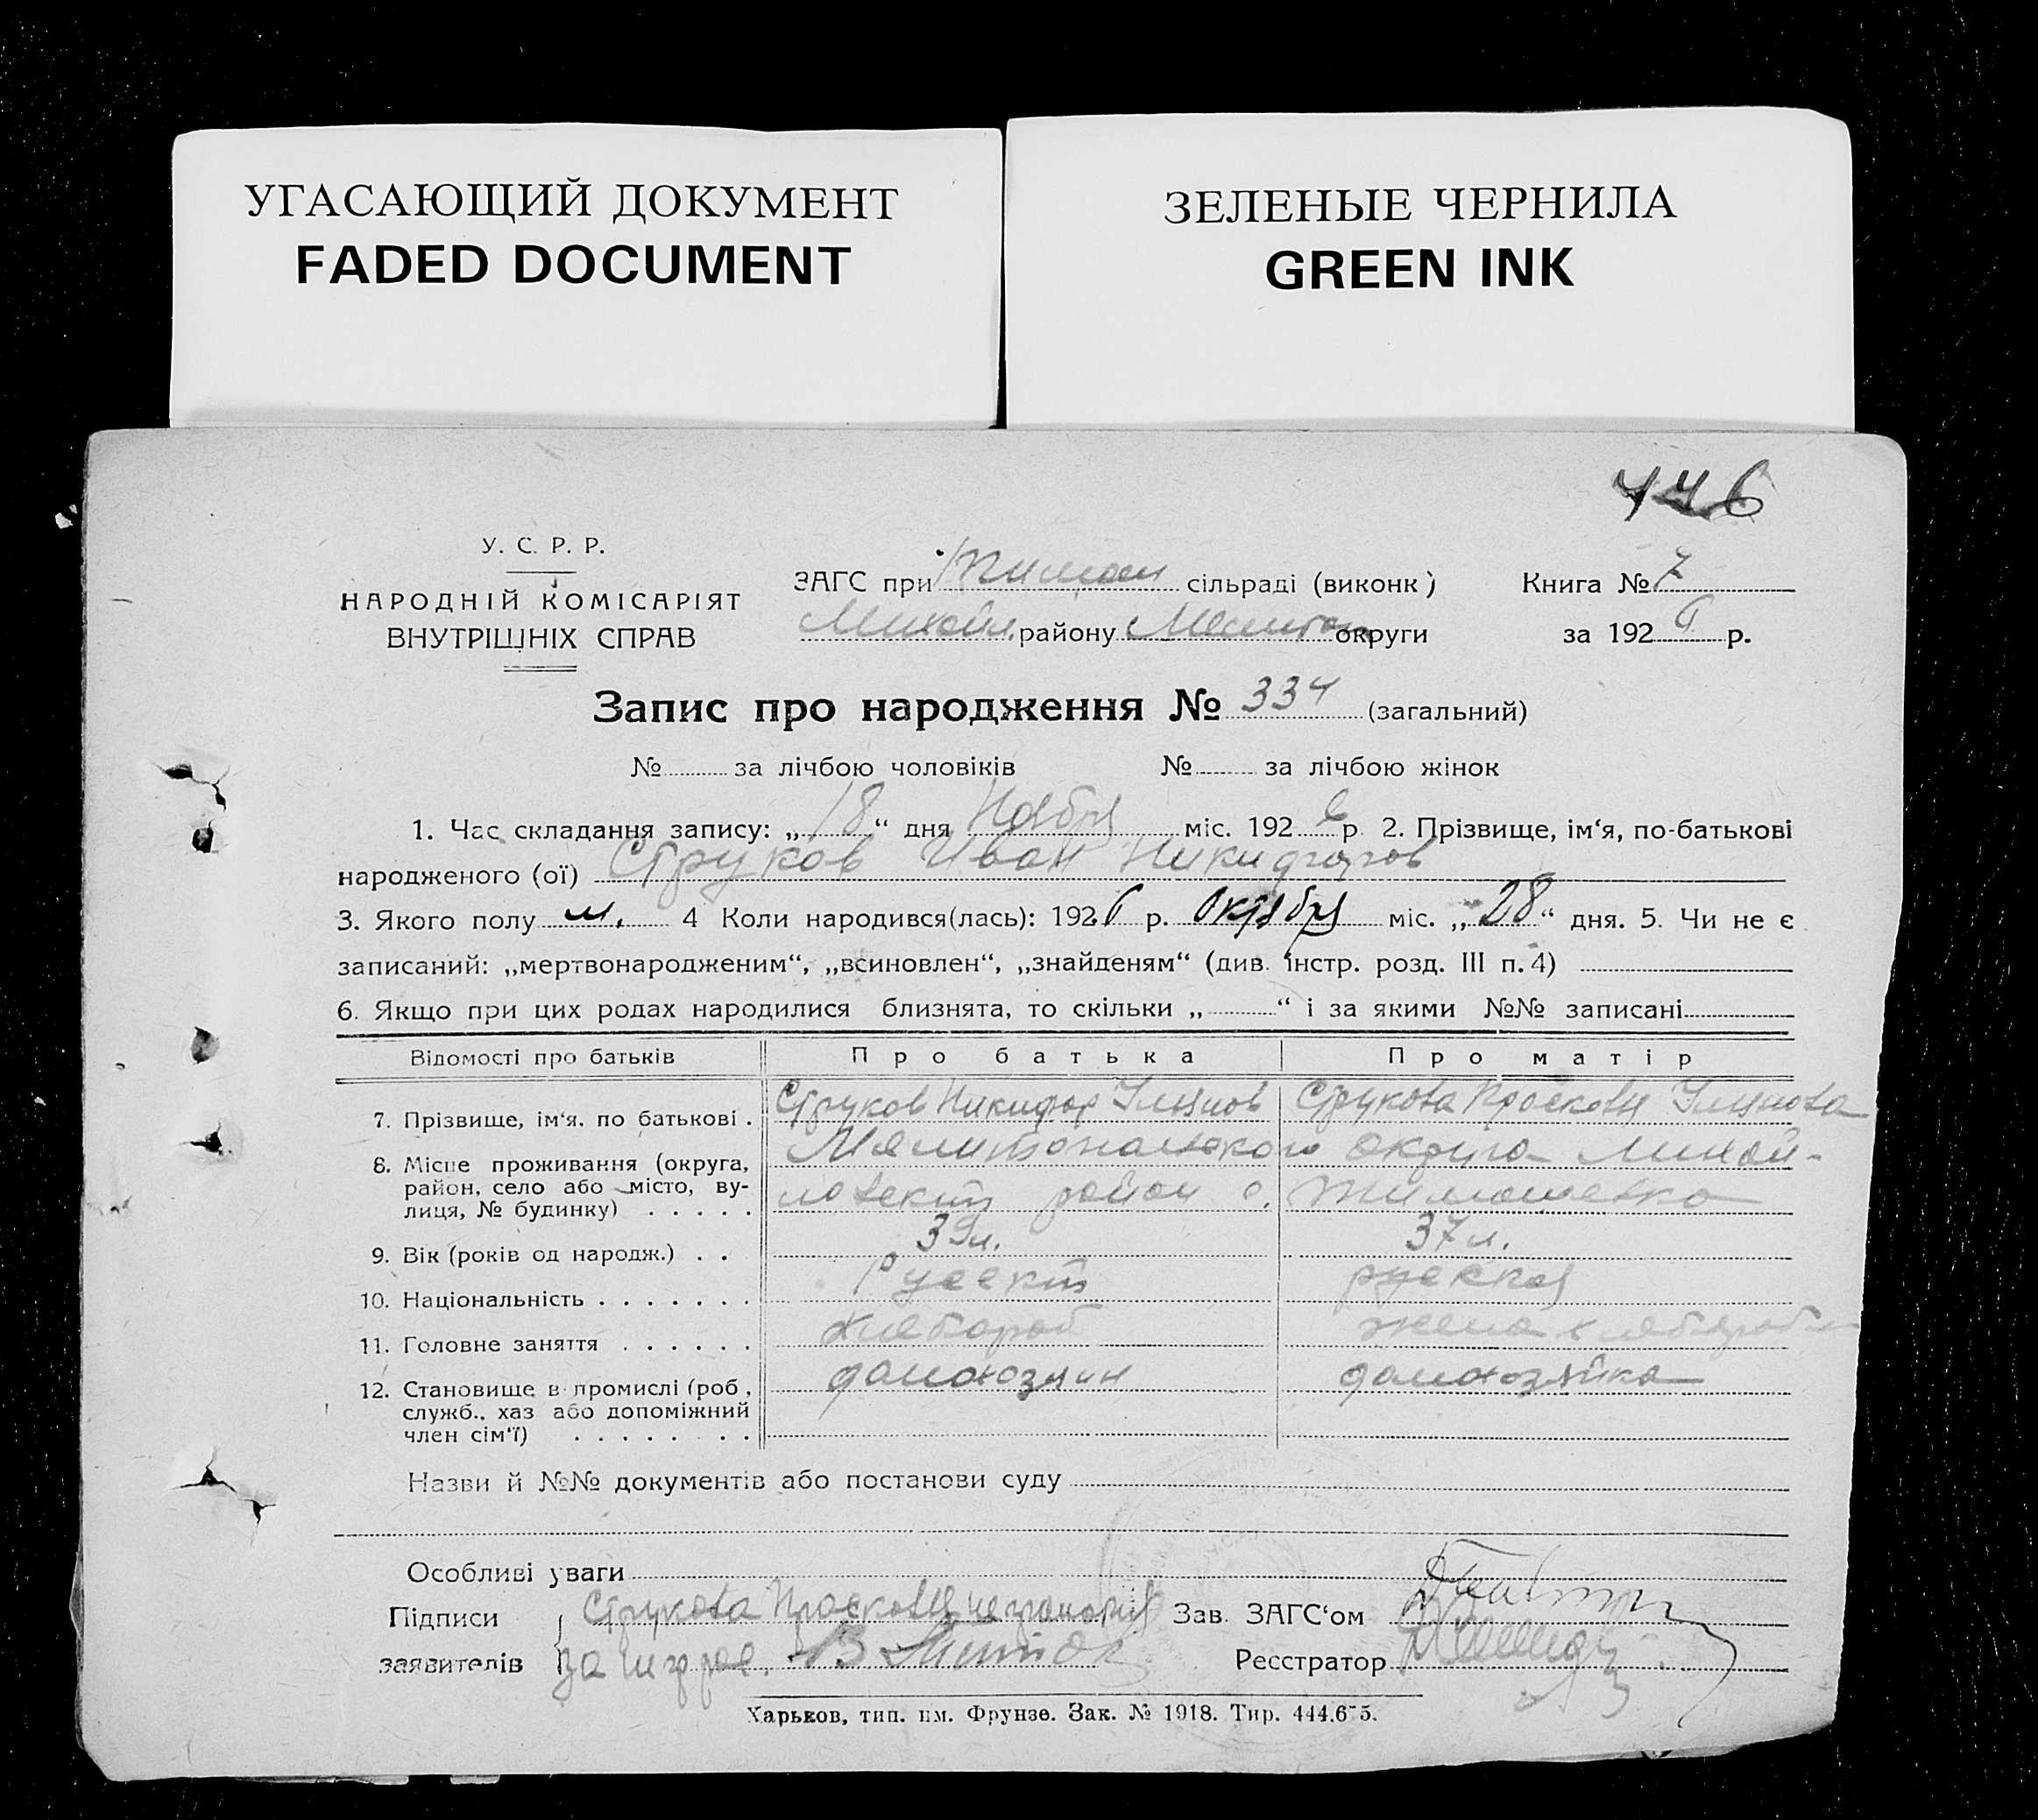 УГАСАЮЩИЙ ДОКУМЕНТ
FADED DOCUMENT
ЗЕЛЕНЫЕ ЧЕРНИЛА
GREEN INK
446
У. С. Р. Р.
НАРОДНІЙ КОМІСАРІЯТ
ВНУТРІШНІХ СПРАВ
ЗАГС при Тимош сільраді (виконк)
Михайл. району Мелитоп округи
Книга № 7
за 1926 р.
Запис про народження № 334 (загальний)
№ за лічбою чоловіків № за лічбою жінок
1. Час складання запису: „18“ дня Ноября міс. 1926 р. 2. Прізвище, ім‘я, по-батькові
народженого (ої) Струков Иван Никифоров
3. Якого полу м. 4 Коли народився(лась): 1926 р. Октября міс. „28“ дня. 5. Чи не є
записаний: „мертвонародженим“, „всиновлен“, „знайденям“ (див. інстр. розд. III п. 4)
6. Якщо при цих родах народилися близнята, то скільки „ “ і за якими №№ записані
Відомості про батьків Про батька Про матір
7. Прізвище, ім‘я. по батькові . Струков Никифор Струкова Просковя
8. Місце проживання (округа, район, село або місто, вулиця, № будинку) . . . . . Мелитопольского округа Михайловский район с. Тимошевка
9. Вік (років од народж.) . . 39 л. 37 л.
10. Національність . . . . . . . Руский руская
11. Головне заняття . . . . . . хлебороб жена хлебороба
12. Становище в промислі (роб., служб., хаз або допоміжний член сім‘ї) . . . . . . . . домохозяин домохозяйка
Назви й №№ документів або постанови суду
Особливі уваги
Підписи заявителів Струкова Просковя неграмотная
за неграм.
Зав. ЗАГС‘ом
Реєстратор
Харьков, тип. им. Фрунзе. Зак. № 1918. Тир. 444.675.